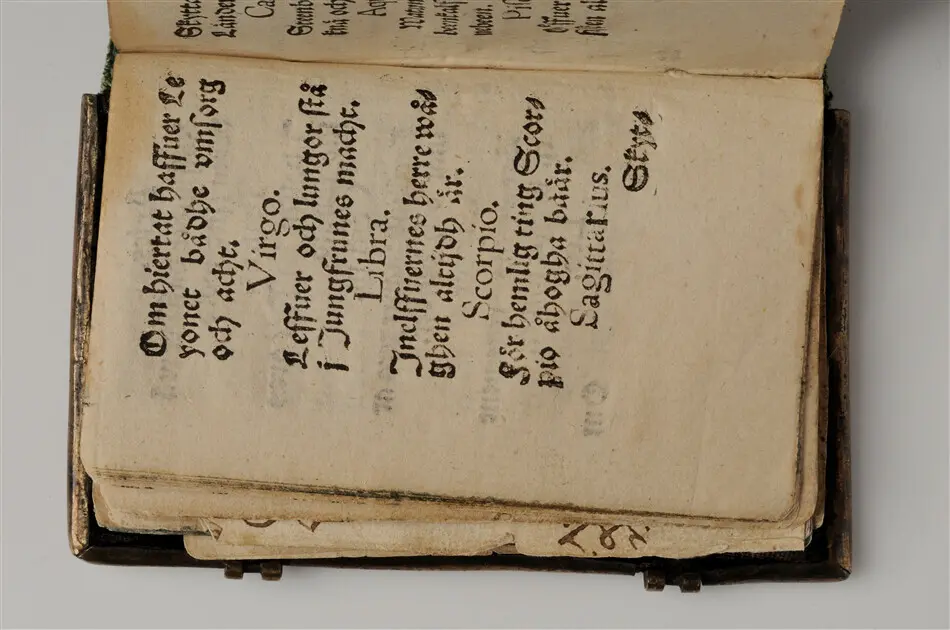 Om hiertat haffuer Le
yonet bådhe vmsorg
och acht.
Virgo.
Leffuer och lungor stå
i Jungfrunes macht.
Libra.
Jnelffuernes herre wås
ghen altijdh är.
Scorpio.
För hemlig ting Scors
pio åhogha bäär.
Sagittarius.
Skytts
Skytte
Länder
Ca
Steenb
knä och
Aqu